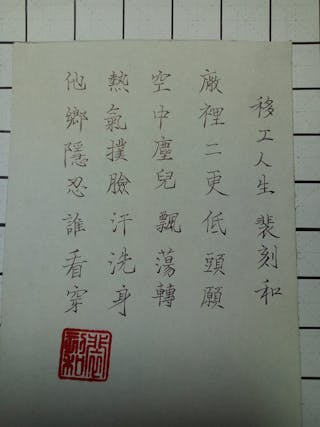 移工人生 裴刻和
廠裡二更低頭願
空中塵兒飄蕩轉
熱氣撲臉汗洗身
他鄉隱忍誰看穿